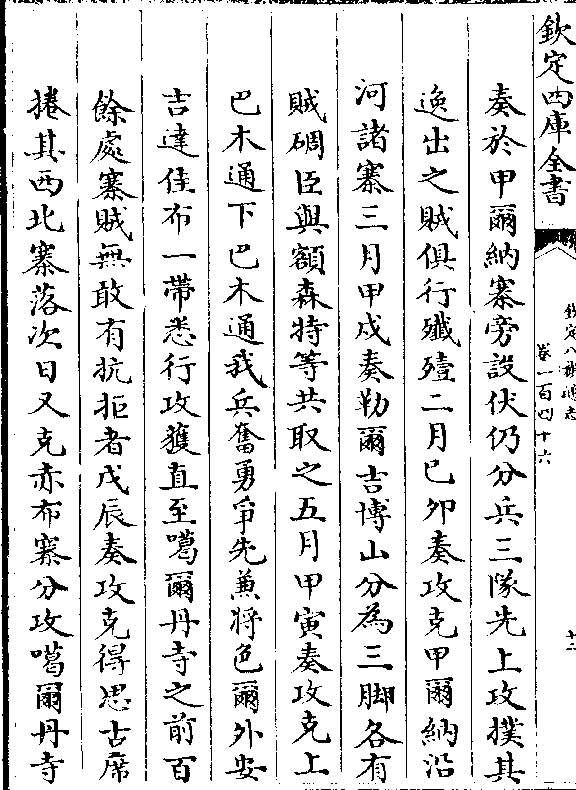 欽定四庫全書
欽定八旗通志
卷一百四十六
十二
奏於甲爾納寨旁設伏仍分兵三隊先上攻撲其
逸出之賊俱行殲殪二月己卯奏攻克甲爾納沿
河諸寨三月甲戌奏勒爾吉博山分為三脚各有
賊碉臣與額森特等共取之五月甲寅奏攻克上
巴木通下巴木通我兵奮勇爭先兼將色爾外安
吉達佳布一帶悉行攻獲直至噶爾丹寺之前百
餘處寨賊無敢有抗拒者戊辰奏攻克得思古席
捲其西北寨落次日又克赤布寨分攻噶爾丹寺